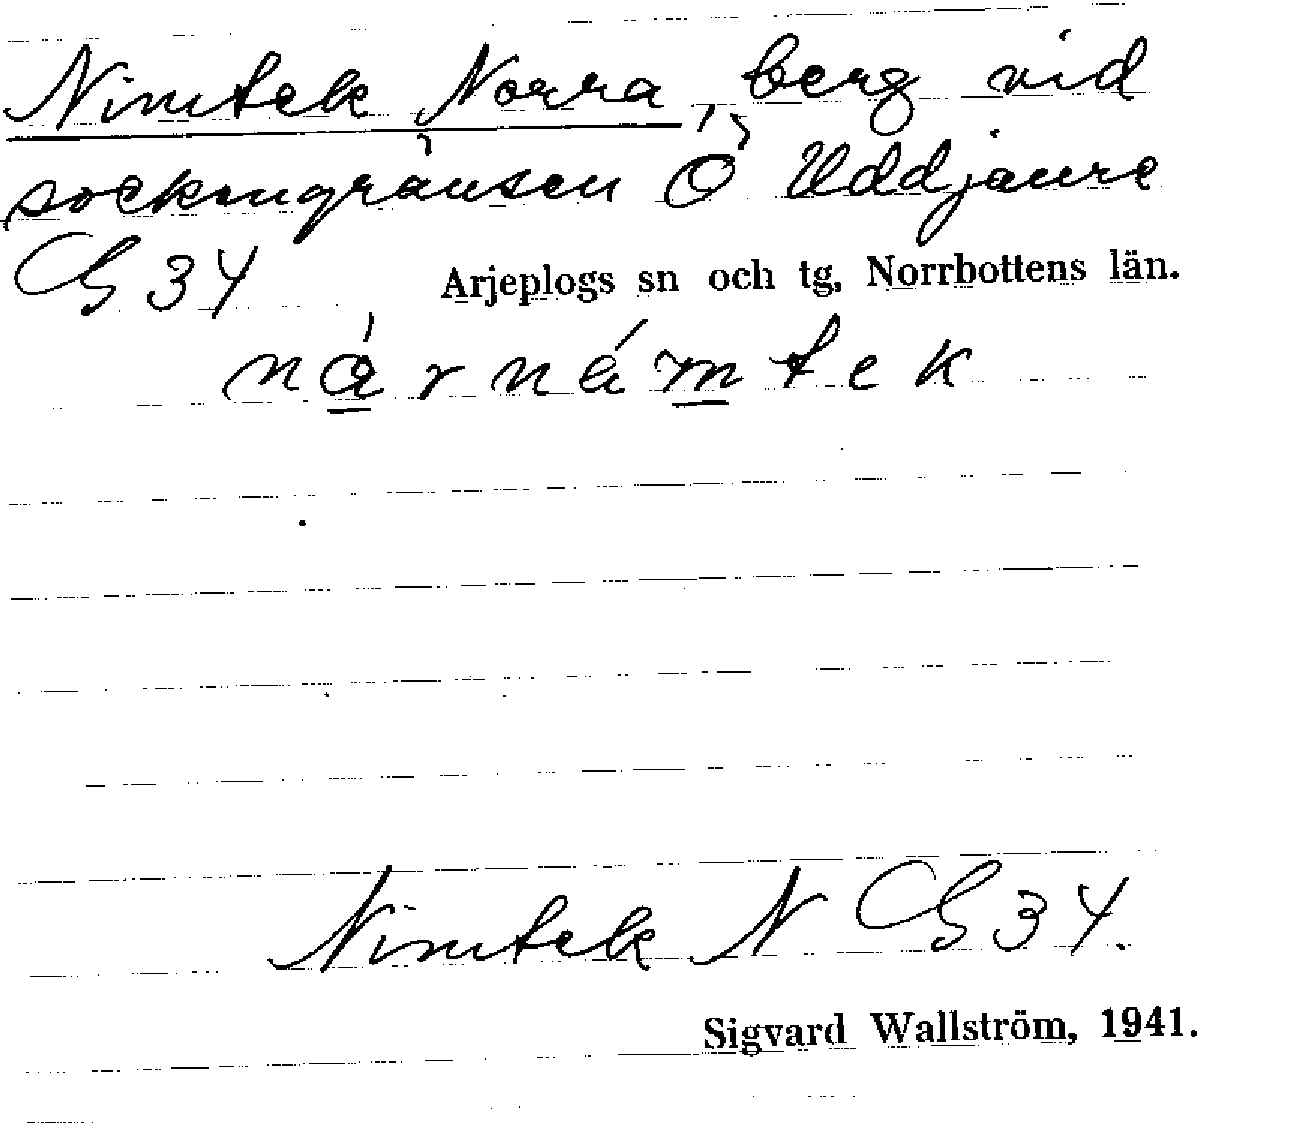 Nimtek Norra, berg vid
sockengränsen Ö Uddjaure
GS 34
Arjeplogs sn och tg, Norrbottens län.
nárnámtek
Nimtek N GS 34.
Sigvard Wallström, 1941.